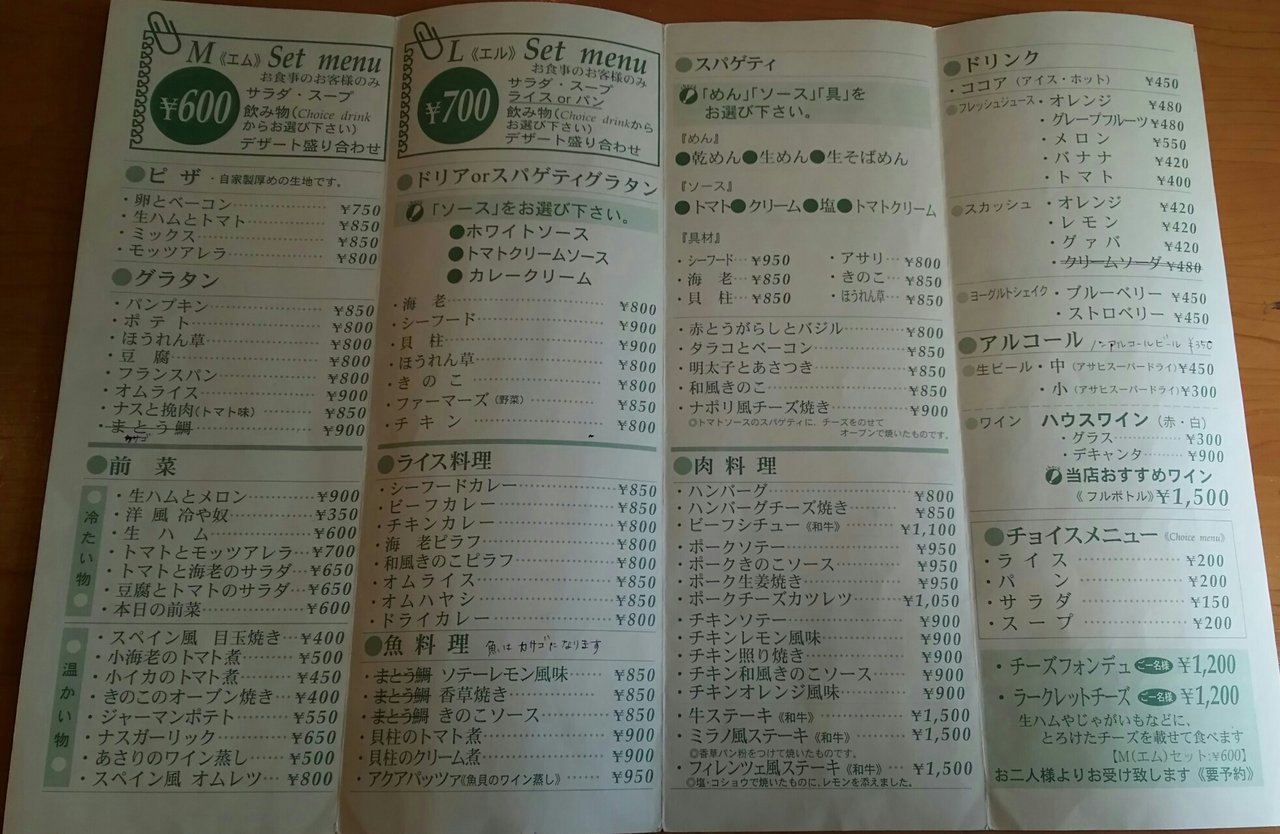 M《エム》Set menu
お食事のお客様のみ
¥600
サラダ・スープ
飲み物(Choice drink
からお選び下さい)
デザート盛り合わせ
●ピザ・自家製厚めの生地です。
・卵とベーコン ¥750
・生ハムとトマト ¥850
・ミックス ¥850
・モッツアレラ ¥800
●グラタン
・パンプキン ¥850
・ポテト ¥800
・ほうれん草 ¥800
・豆腐 ¥800
・フランスパン ¥800
・オムライス ¥900
・ナスと挽肉(トマト味) ¥850
・まとう鯛 ¥900
カサゴ
●前菜
冷たい物
・生ハムとメロン ¥900
・洋風冷や奴 ¥350
・生ハム ¥600
・トマトとモッツアレラ ¥700
・トマトと海老のサラダ ¥650
・豆腐とトマトのサラダ ¥650
・本日の前菜 ¥600
温かい物
・スペイン風 目玉焼き ¥400
・小海老のトマト煮 ¥500
・小イカのトマト煮 ¥450
・きのこのオーブン焼き ¥400
・ジャーマンポテト ¥550
・ナスガーリック ¥650
・あさりのワイン蒸し ¥500
・スペイン風 オムレツ ¥800
L《エル》Set menu
お食事のお客様のみ
¥700
サラダ・スープ
ライス or パン
飲み物(Choice drinkから
お選び下さい)
デザート盛り合わせ
●ドリアorスパゲティグラタン
「ソース」をお選び下さい。
●ホワイトソース
●トマトクリームソース
●カレークリーム
・海老 ¥800
・シーフード ¥900
・貝柱 ¥900
・ほうれん草 ¥800
・きのこ ¥800
・ファーマーズ(野菜) ¥850
・チキン ¥800
●ライス料理
・シーフードカレー ¥850
・ビーフカレー ¥850
・チキンカレー ¥800
・海老ピラフ ¥800
・和風きのこピラフ ¥800
・オムライス ¥850
・オムハヤシ ¥850
・ドライカレー ¥800
●魚料理 魚は カサゴになります
・まとう鯛 ソテーレモン風味 ¥850
・まとう鯛 香草焼き ¥850
・まとう鯛 きのこソース ¥850
・貝柱のトマト煮 ¥900
・貝柱のクリーム煮 ¥900
・アクアパッツァ《魚貝のワイン蒸し》 ¥950
●スパゲティ
「めん」「ソース」「具」を
お選び下さい。
『めん』
●乾めん●生めん●生そばめん
『ソース』
●トマト●クリーム●塩●トマトクリーム
『具材』
・シーフード ¥950 ・アサリ ¥800
・海老 ¥850 ・きのこ ¥850
・貝柱 ¥850 ・ほうれん草 ¥850
・赤とうがらしとバジル ¥800
・タラコとベーコン ¥850
・明太子とあさつき ¥850
・和風きのこ ¥850
・ナポリ風チーズ焼き ¥900
◎トマトソースのスパゲティに、チーズをのせて
オーブンで焼いたものです。
●肉料理
・ハンバーグ ¥800
・ハンバーグチーズ焼き ¥850
・ビーフシチュー《和牛》 ¥1,100
・ポークソテー ¥950
・ポークきのこソース ¥950
・ポーク生姜焼き ¥950
・ポークチーズカツレツ ¥1,050
・チキンソテー ¥900
・チキンレモン風味 ¥900
・チキン照り焼き ¥900
・チキン和風きのこソース ¥900
・チキンオレンジ風味 ¥900
・牛ステーキ《和牛》 ¥1,500
・ミラノ風ステーキ《和牛》 ¥1,500
◎香草パン粉をつけて焼いたものです。
・フィレンツェ風ステーキ《和牛》 ¥1,500
◎塩・コショウで焼いたものに、レモンを添えました。
●ドリンク
・ココア(アイス・ホット) ¥450
●フレッシュジュース・オレンジ ¥480
・グレープフルーツ ¥480
・メロン ¥550
・バナナ ¥420
・トマト ¥400
●スカッシュ・オレンジ ¥420
・レモン ¥420
・グァバ ¥420
・クリームソーダ ¥480
●ヨーグルトシェイク・ブルーベリー ¥450
・ストロベリー ¥450
●アルコール ノンアルコールビール ¥350
●生ビール・中(アサヒスーパードライ)¥450
・小(アサヒスーパードライ)¥300
●ワイン ハウスワイン(赤・白)
・グラス ¥300
・デキャンタ ¥900
当店おすすめワイン
《フルボトル》¥1,500
●チョイスメニュー《Choice menu》
・ライス ¥200
・パン ¥200
・サラダ ¥150
・スープ ¥200
・チーズフォンデュ ご一名様 ¥1,200
・ラークレットチーズ ご一名様 ¥1,200
生ハムやじゃがいもなどに、
とろけたチーズを載せて食べます
【M(エム)セット:¥600】
お二人様よりお受け致します《要予約》